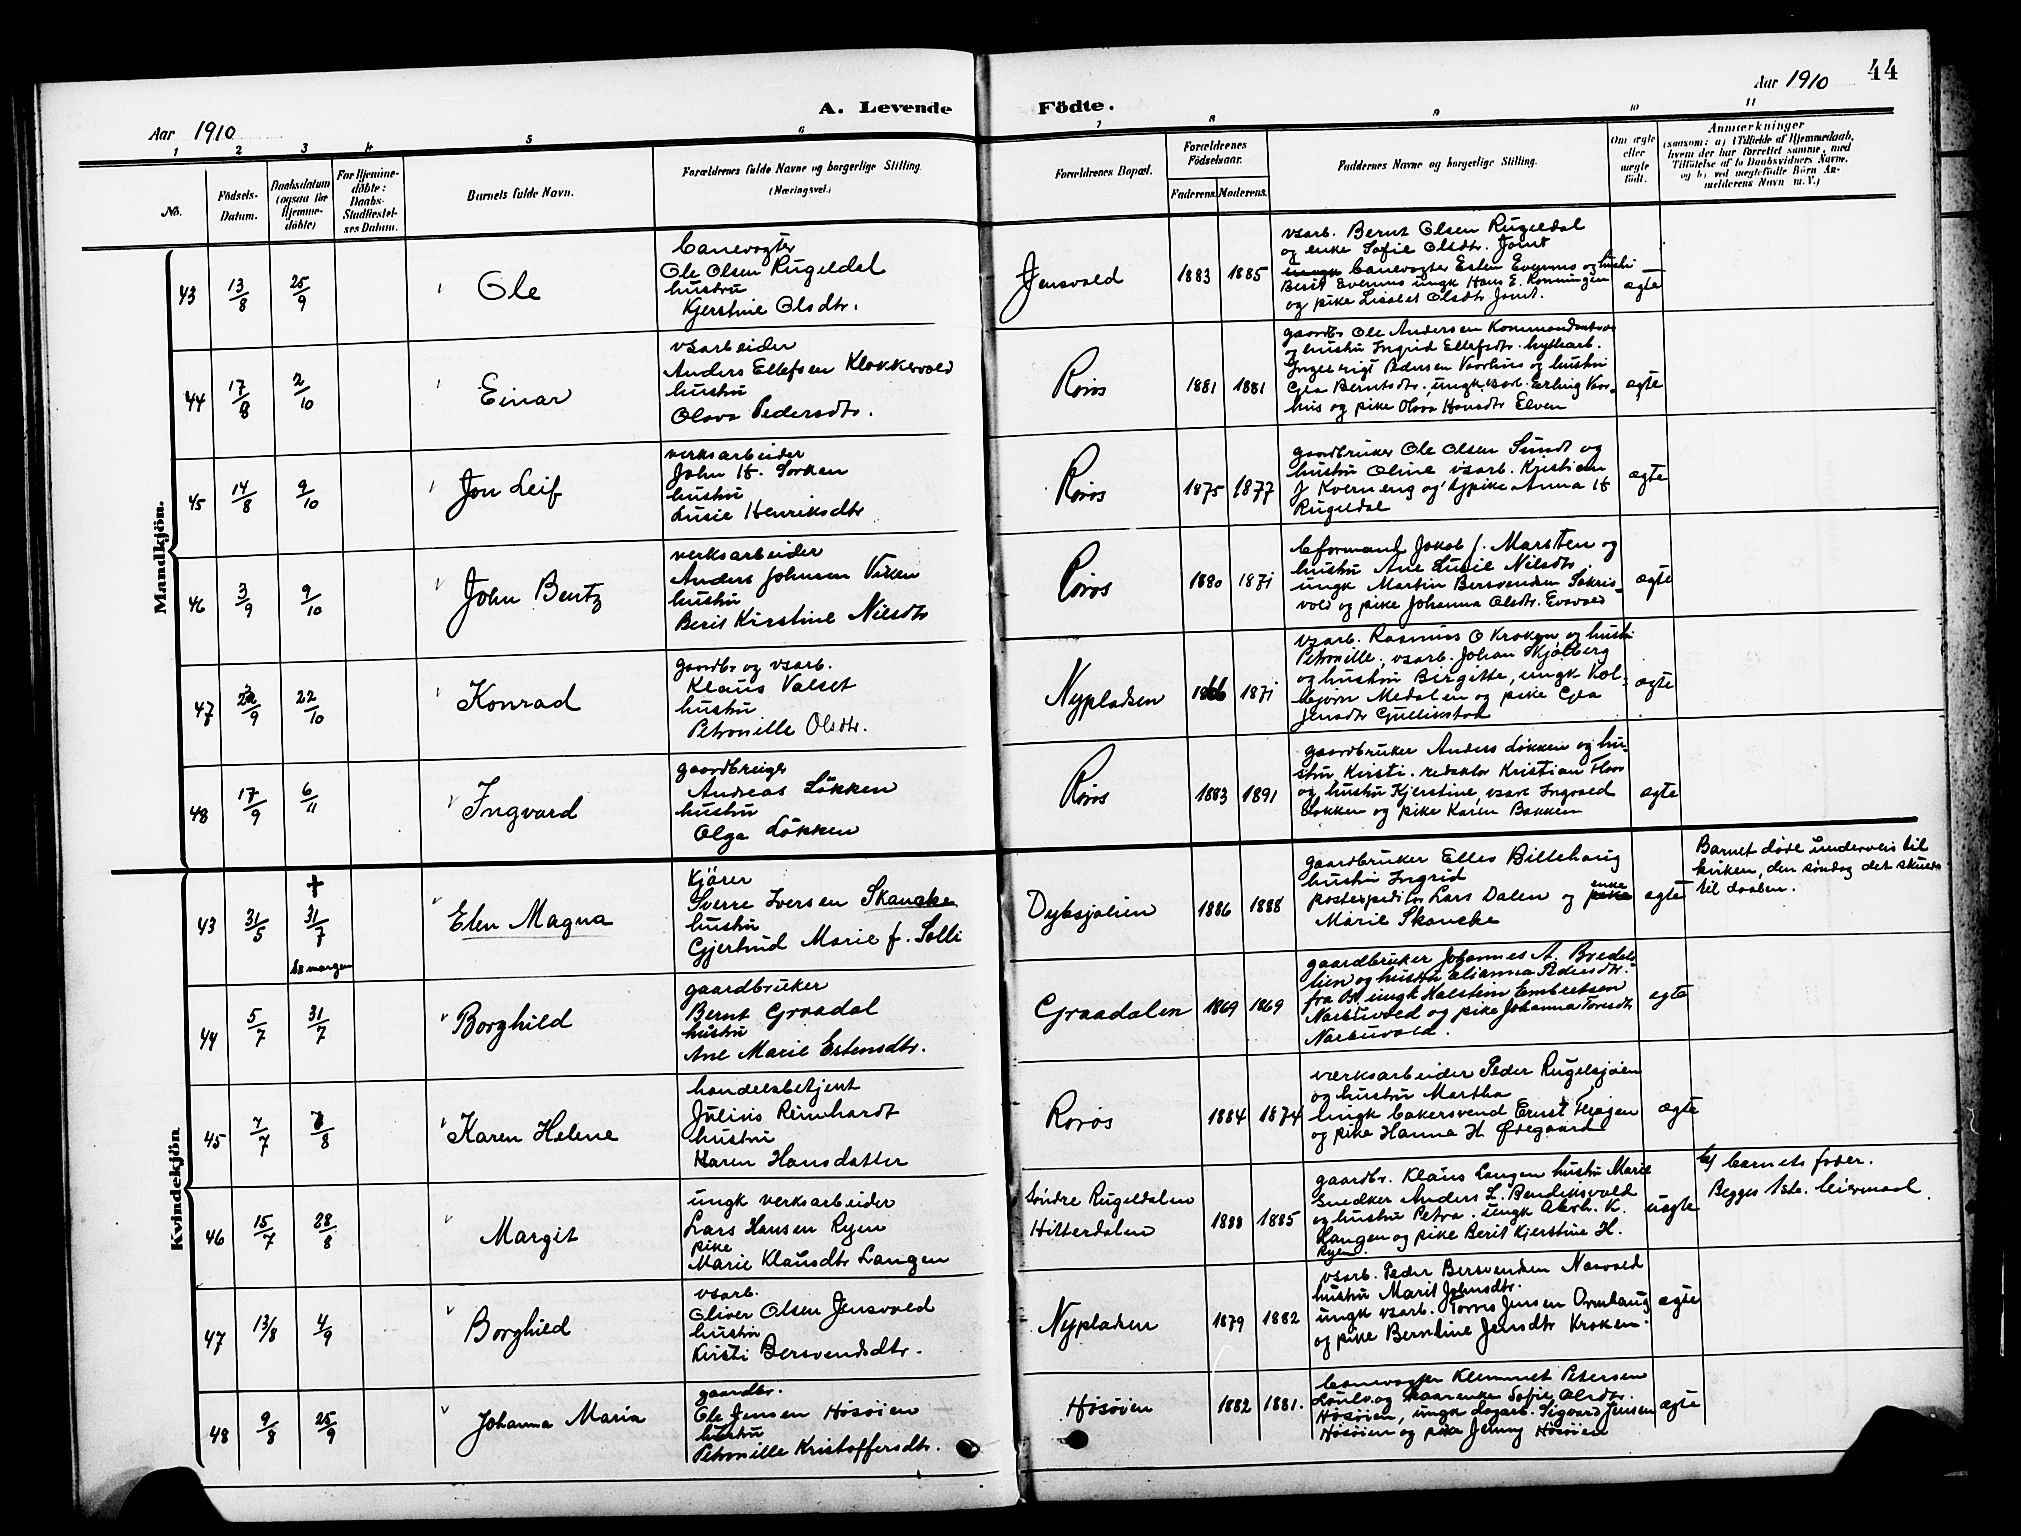 44
Aar 1910
A. Levende Födte.
Aar 1910
1 2 3 4 5 6 7 8 9 10 11
No.
Födsels-
Datum.
Daabsdatum
(ogsaa for
Hjemme-
döbte)
For Hjemme-
döbte:
Daabs-
Stadfæstel-
ses Datum.
Barnets fulde Navn.
Forældrenes fulde Navne og borgerlige Stilling
(Næringsvei.)
Forældrenes Bopæl.
Forældrenes
Födselsaar.
Faderens. Moderens.
Faddernes Navne og borgerlige Stilling.
Om ægte
eller
uægte
født.
Anmærkninger
(saasom: a) i Tilfælde af Hjemmedaab,
hvem der har forrettet samme, med
Tilføielse af to Daabsvidners Navne.
og b) ved uægtefødte Børn An-
melderens Navn m. V.)
Mandkjön.
43 13/8 25/9 Ole
banevogter
Ole Olsen Rugeldal
hustru
Kjerstine Olsdtr.
Jensvold 1883 1885
vsarb. Bernt Olsen Rugeldal
og enke Sofie Olsdtr. Jamt
banevogter Esten Evenmo og hustru
Berit Evenmo ungk Hans E. Ronningen
og pike Lisabet Olsdtr Jamt.
ægte
44 17/8 2/10 Einar
vsarbeider
Anders Ellefsen Klokkervold
hustru
Olava Pedersdtr.
Røros 1881 1881
gaardbr Ole Andersen
og hustru Ingrid Ellefsdtr. hyttearb.
Ingebrigt Pedersen Vaarhus og hustru
Gea Berntsdtr, ungk vsarb. Erling Vor-
hus og pike Olava Hansdtr Elven
ægte
45 14/8 9/10 Jon Leif
verksarbeider
John H. Sorken
hustru
Lusie Henriksdtr
Røros 1875 1877
gaardbruker Ole Olsen Sundt og
hustru Oline vsarb. Kristian
J Kverneng og pike Anna H
Rugeldal
ægte
46 3/9 9/10 John Bentz
verksarbeider
Anders Johnsen Viken
hustru
Berit Kirstine Nilsdtr
Røros 1880 1871
formand Jakob J. Marsten og
hustru Ane Lusie Nilsdtr.
ungk Martin Bersvendsen Sakris-
vold og pike Johanna Olsdtr. Evavold
ægte
47 22/9 22/10 Konrad
gaardbr og vsarb.
Klaus Valset
hustru
Petronille Olsdtr.
Nypladsen 1866 1871
vsarb. Rasmus O Kroken og hustru
Petronille, vsarb. Johan Skjølberg
og hustru Birgitte, ungk Kol-
bjørn Medalen og pike Gea
Jensdtr Gullikstad
ægte
48 17/9 6/11 Ingvard
gaardbruger
Andreas Løkken
hustru
Olga Løkken
Røros 1883 1891
gaardbruker Anders Løkken og hu-
stru Kirsti. redaktør Kristian Floor
og hustru Kjerstine, vsarb Ingvald
Løkken og pike Karen Bakken
ægte
Kvindekjön
43 31/5 † 31/7
Elen Magna
Kjører
Sverre Iversen Skancke
hustru
Gjertrud Marie f. Solli
Dybsjølien 1886 1888
gaardbruker Elles Billehaug
hustru Ingrid
postexpeditør Lars Dalen og enke
Marie Skancke
ægte
Barnet døde underveis til
kirken, den søndag det skulde
til daaben.
se margen
44 5/7 31/7 Borghild
gaardbruker
Bernt Graadal
hustru
Ane Marie Estensdtr.
Graadalen 1869 1869
gaardbruker Johannes A. Bredals-
lien og hustru Elianna Pedersdtr.
fra Os, ungk Halstein Embretsen
Narbuvold og pike Johanna Toresdtr
Narbuvold.
ægte
45 7/7 7/8 Karen Helene
handelsbetjent
Julius Reinhardt
hustru
Karen Hansdatter
Røros 1884 1874
værksarbeider Peder Rugelsjøen
og hustru Martha
Ungk bakersvend Ernst Flejgen
og pike Hanna H Ødegaard
ægte
46 15/7 28/8 Margit
ungk verksarbeider
Lars Hansen Ryen
pike
Marie Klausdtr Langen
Søndre Rugeldalen
Hitterdalen 1888 1885
gaardbr. Klaus Langen hustru Marie
Snedker Anders L. Bendiksvold
og hustru Petra. ungk Abrh. K.
Langen og pike Berit Kjerstine H.
Ryen.
uægte
b/ barnets fader.
Begges 1ste leiermaal.
47 13/8 4/9 Borghild
vsarb.
Oliver Olsen Jensvold
hustru
Kirsti Bersvendsdtr.
Nypladsen 1879 1882
vsarb. Peder Bersvendsen Nasvold
hustru Marit Johnsdtr.
ungk vsarb. Torris Jensen Overhaug
og pike Berntine Jensdtr Kroken.
ægte
48 9/8 25/9 Johanna Maria
gaardbr.
Ole Jensen Høsøien
hustru
Petronille Kristoffersdtr.
Høsøien 1882 1881.
banevogter Klemmet Petersen
og Sofie Olsdtr.
Høsøien, ungk dagarb. Sigvard Jensen
Høsøien og pike Jenny Høsøien
ægte